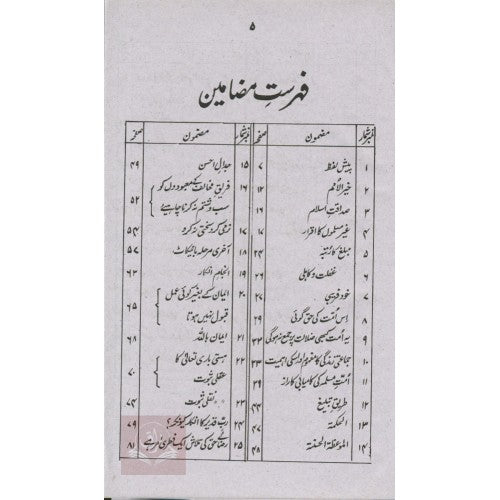 ۵
فہرستِ مضامین
نمبر شمار مضمون صفحہ
۱ پیش لفظ ۷
۲ خیر الامم ۱۲
۳ صداقتِ اسلام ۱۶
۴ غیر مسلموں کا اقرار ۱۷
۵ مبلغ کا رتبہ ۲۴
۶ غفلت و کاہلی ۲۶
۷ خود فریبی ۲۷
۸ اس امت کی حق گوئی ۲۹
۹ یہ امت کبھی ضلالت پر جمع نہ ہوگی ۳۳
۱۰ جماعتی زندگی کا مفہوم اور اسکی اہمیت ۳۳
۱۱ امتِ مسلمہ کی کامیابی کا راز ۳۹
۱۲ طریقِ تبلیغ ۴۴
۱۳ الحکمۃ ۴۷
۱۴ الموعظۃ الحسنۃ ۴۸
نمبر شمار مضمون صفحہ
۱۵ جدالِ احسن ۴۹
۱۶ فریقِ مخالف کے معبودوں کو
سب و شتم نہ کرنا چاہیے ۵۲
۱۷ نرمی کرو سختی نہ کرو ۵۴
۱۸ آخری مرحلہ بائیکاٹ ۵۷
۱۹ انجامِ انکار ۶۳
۲۰ ایمان کے بغیر کوئی عمل
قبول نہیں ہوتا ۶۵
۲۱ ایمان باللہ ۶۸
۲۲ ہستی باری تعالیٰ کا
عقلی ثبوت ۷۰
۲۳ " نقلی ثبوت ۷۴
۲۴ ربِّ قدیر کا انکار کیونکر؟ ۷۹
۲۵ رضائے حق کی تلاش ایک فطری امر ہے ۸۱